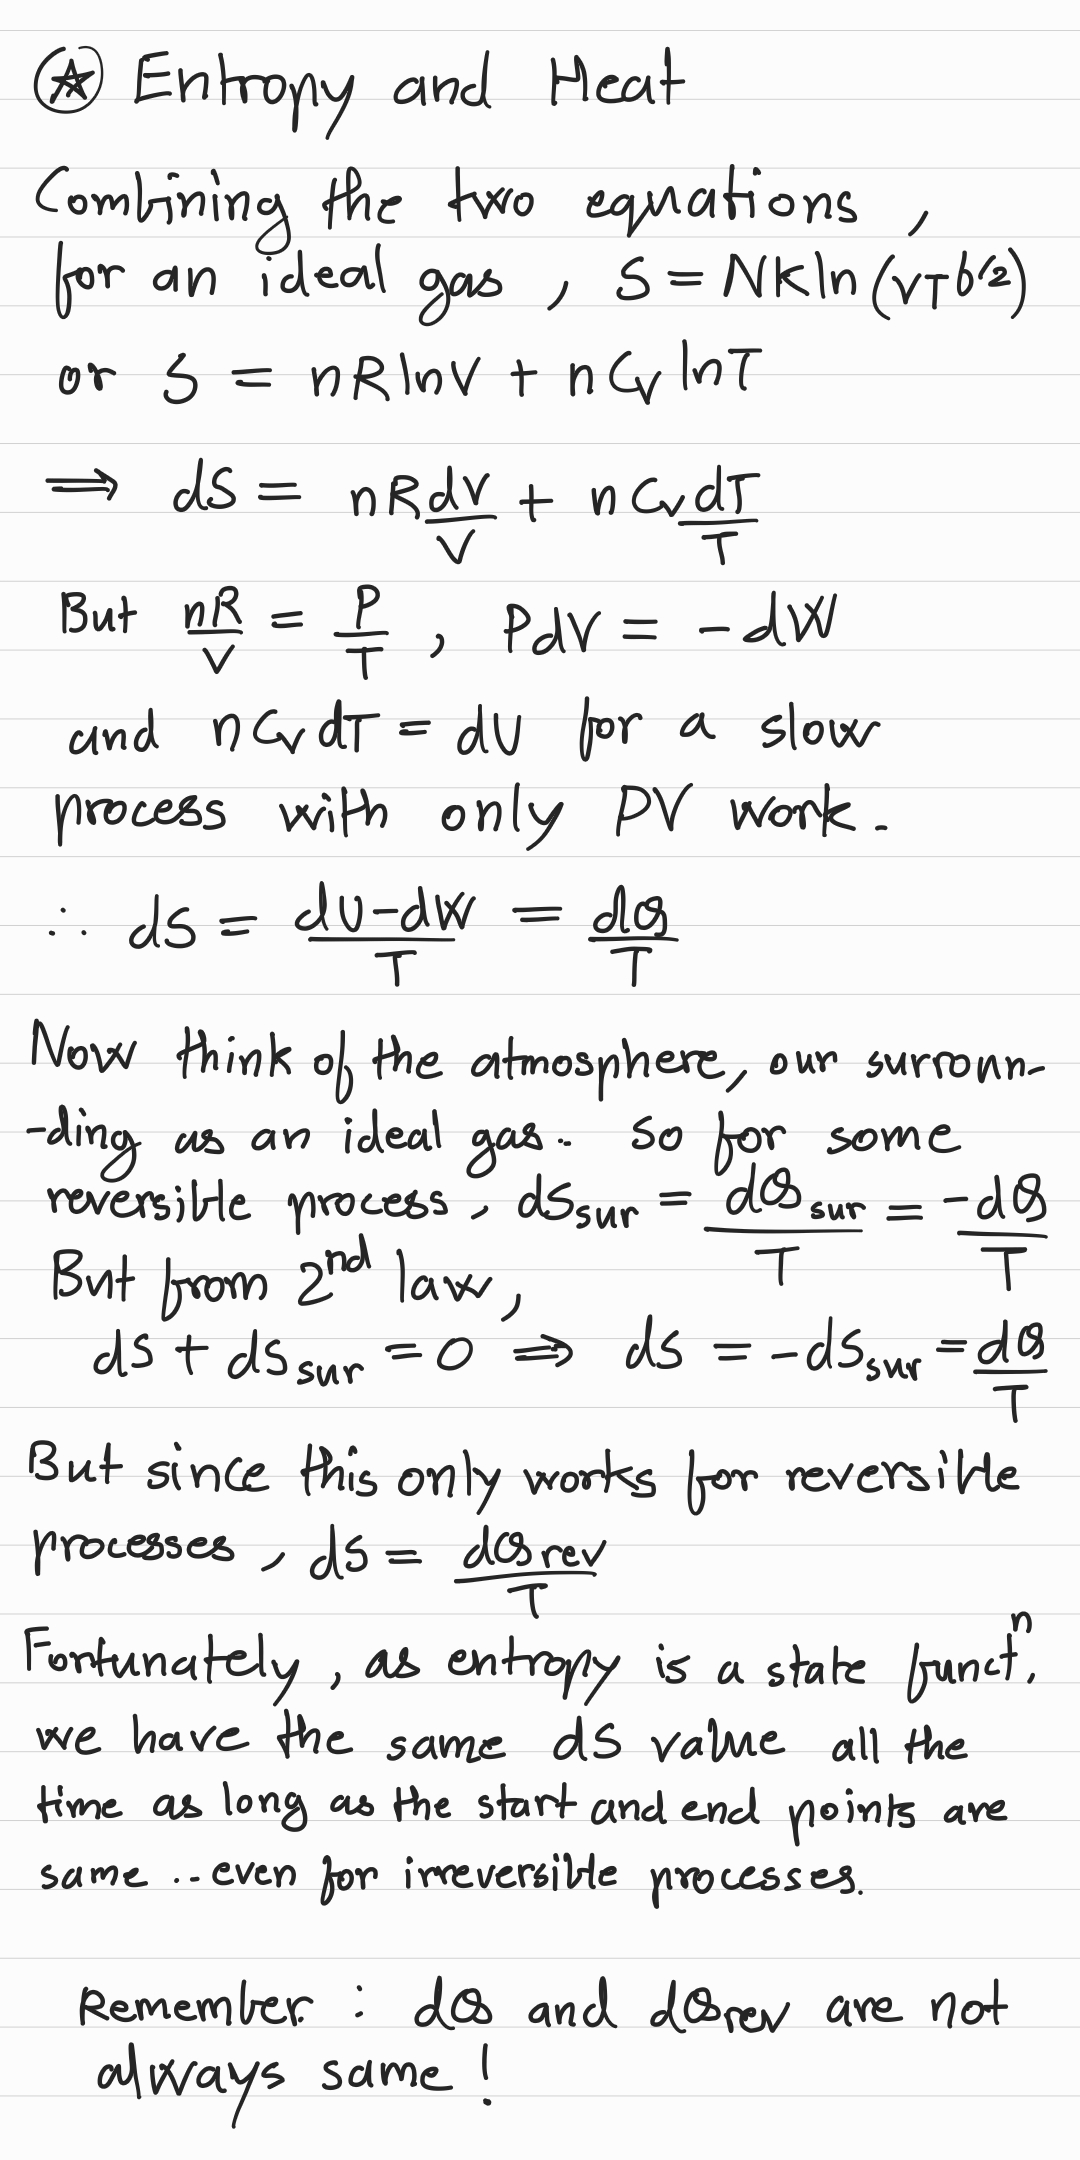 ⍟ Entropy and Heat
Combining the two equations,
for an ideal gas, S = Nk ln (VT^b/2)
or S = nR lnV + nC_V lnT
⟹ dS = nR dV/V + nC_V dT/T
But nR/V = P/T, PdV = -dW
and nC_V dT = dU for a slow
process with only PV work.
∴ dS = (dU-dW)/T = dQ/T
Now think of the atmosphere, our surroun-
-ding as an ideal gas.. so for some
reversible process, dS_sur = dQ_sur/T = -dQ/T
But from 2nd law,
dS + dS_sur = 0 ⟹ dS = -dS_sur = dQ/T
But since this only works for reversible
processes, dS = dQ_rev/T
Fortunately, as entropy is a state funct^n.
we have the same dS value all the
time as long as the start and end points are
same ... even for irreversible processes.
Remember : dQ and dQ_rev are not
always same!